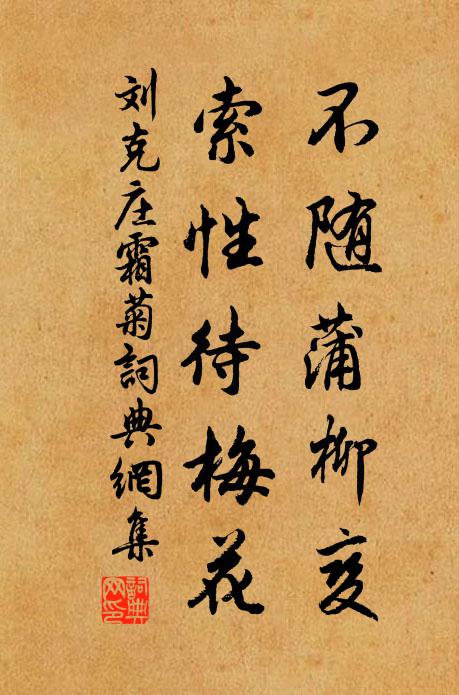 不随蒲柳变
索性待梅花
刘克庄霜菊詞典網集
詞典网印